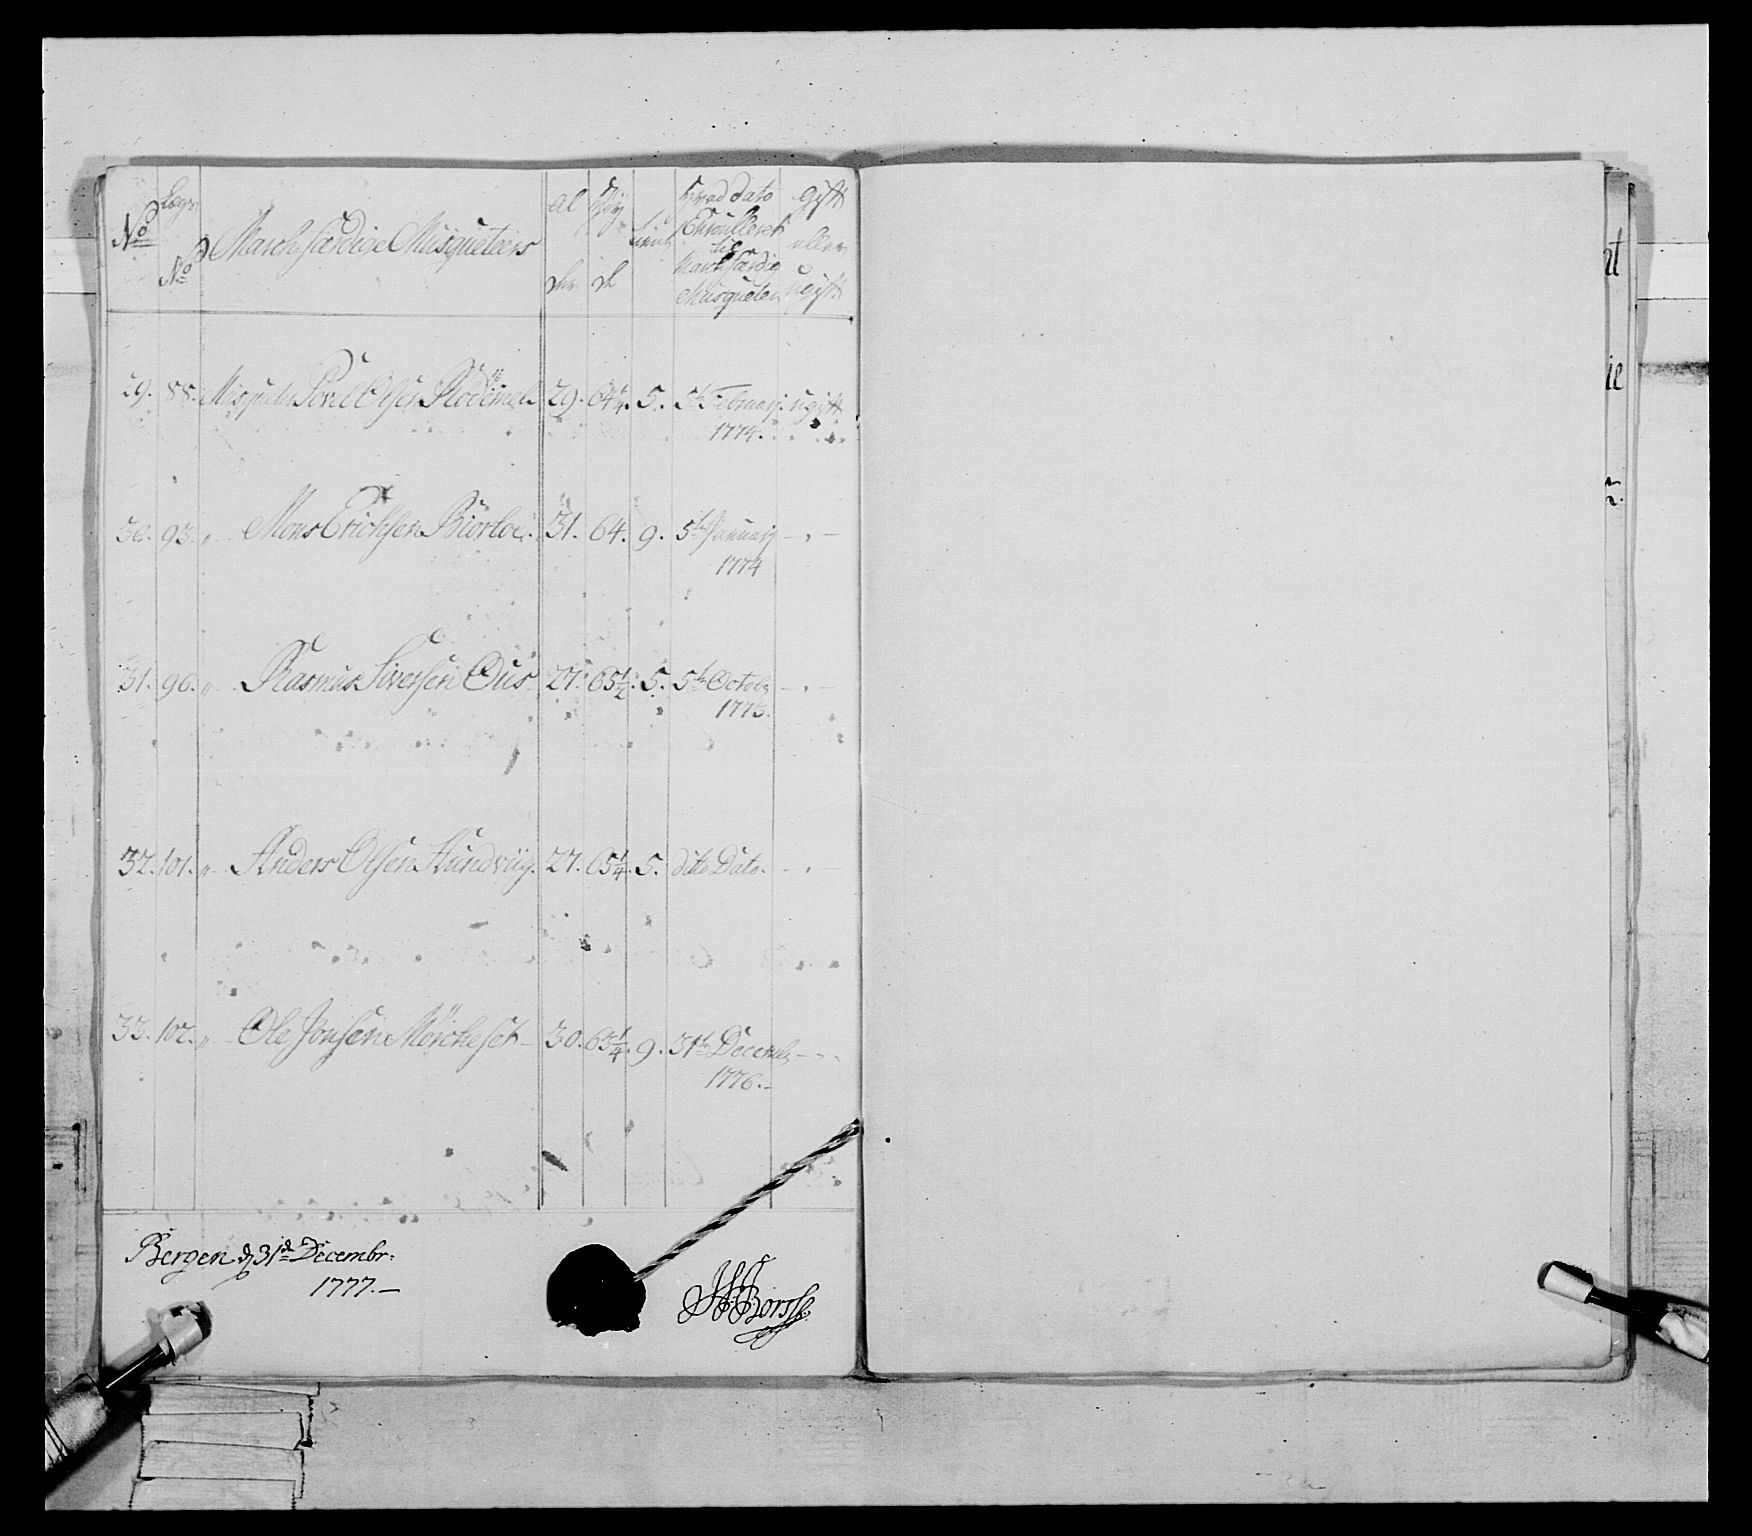 No Lægs No March færdige Musqueteers Al der Høy de Tient hvad dato Enroulleret til March færdig Musqueter Gift eller ugift
29. 88. Musqueter Povel Olsen Flödemel 29. 64¼. 5. 5te Februarj. ugift
1774.
30. 93. „ Mons Erichsen Biorloe. 31. 64. 9. 5te Januarij — „ —
1774
31. 96. „ Rasmus Siversen Ous 27. 65½. 5. 5te Octobr — „ —
1773.
32. 101. „ Anders Olsen Hundviig. 27. 65¼. 5. dito Dato. — „ —
33. 102. „ Ole Jonsen Mörcheset 30. 65¼. 9. 31te Decembr — „ —
1776.
Bergen d 31de Decembr:
1777.—